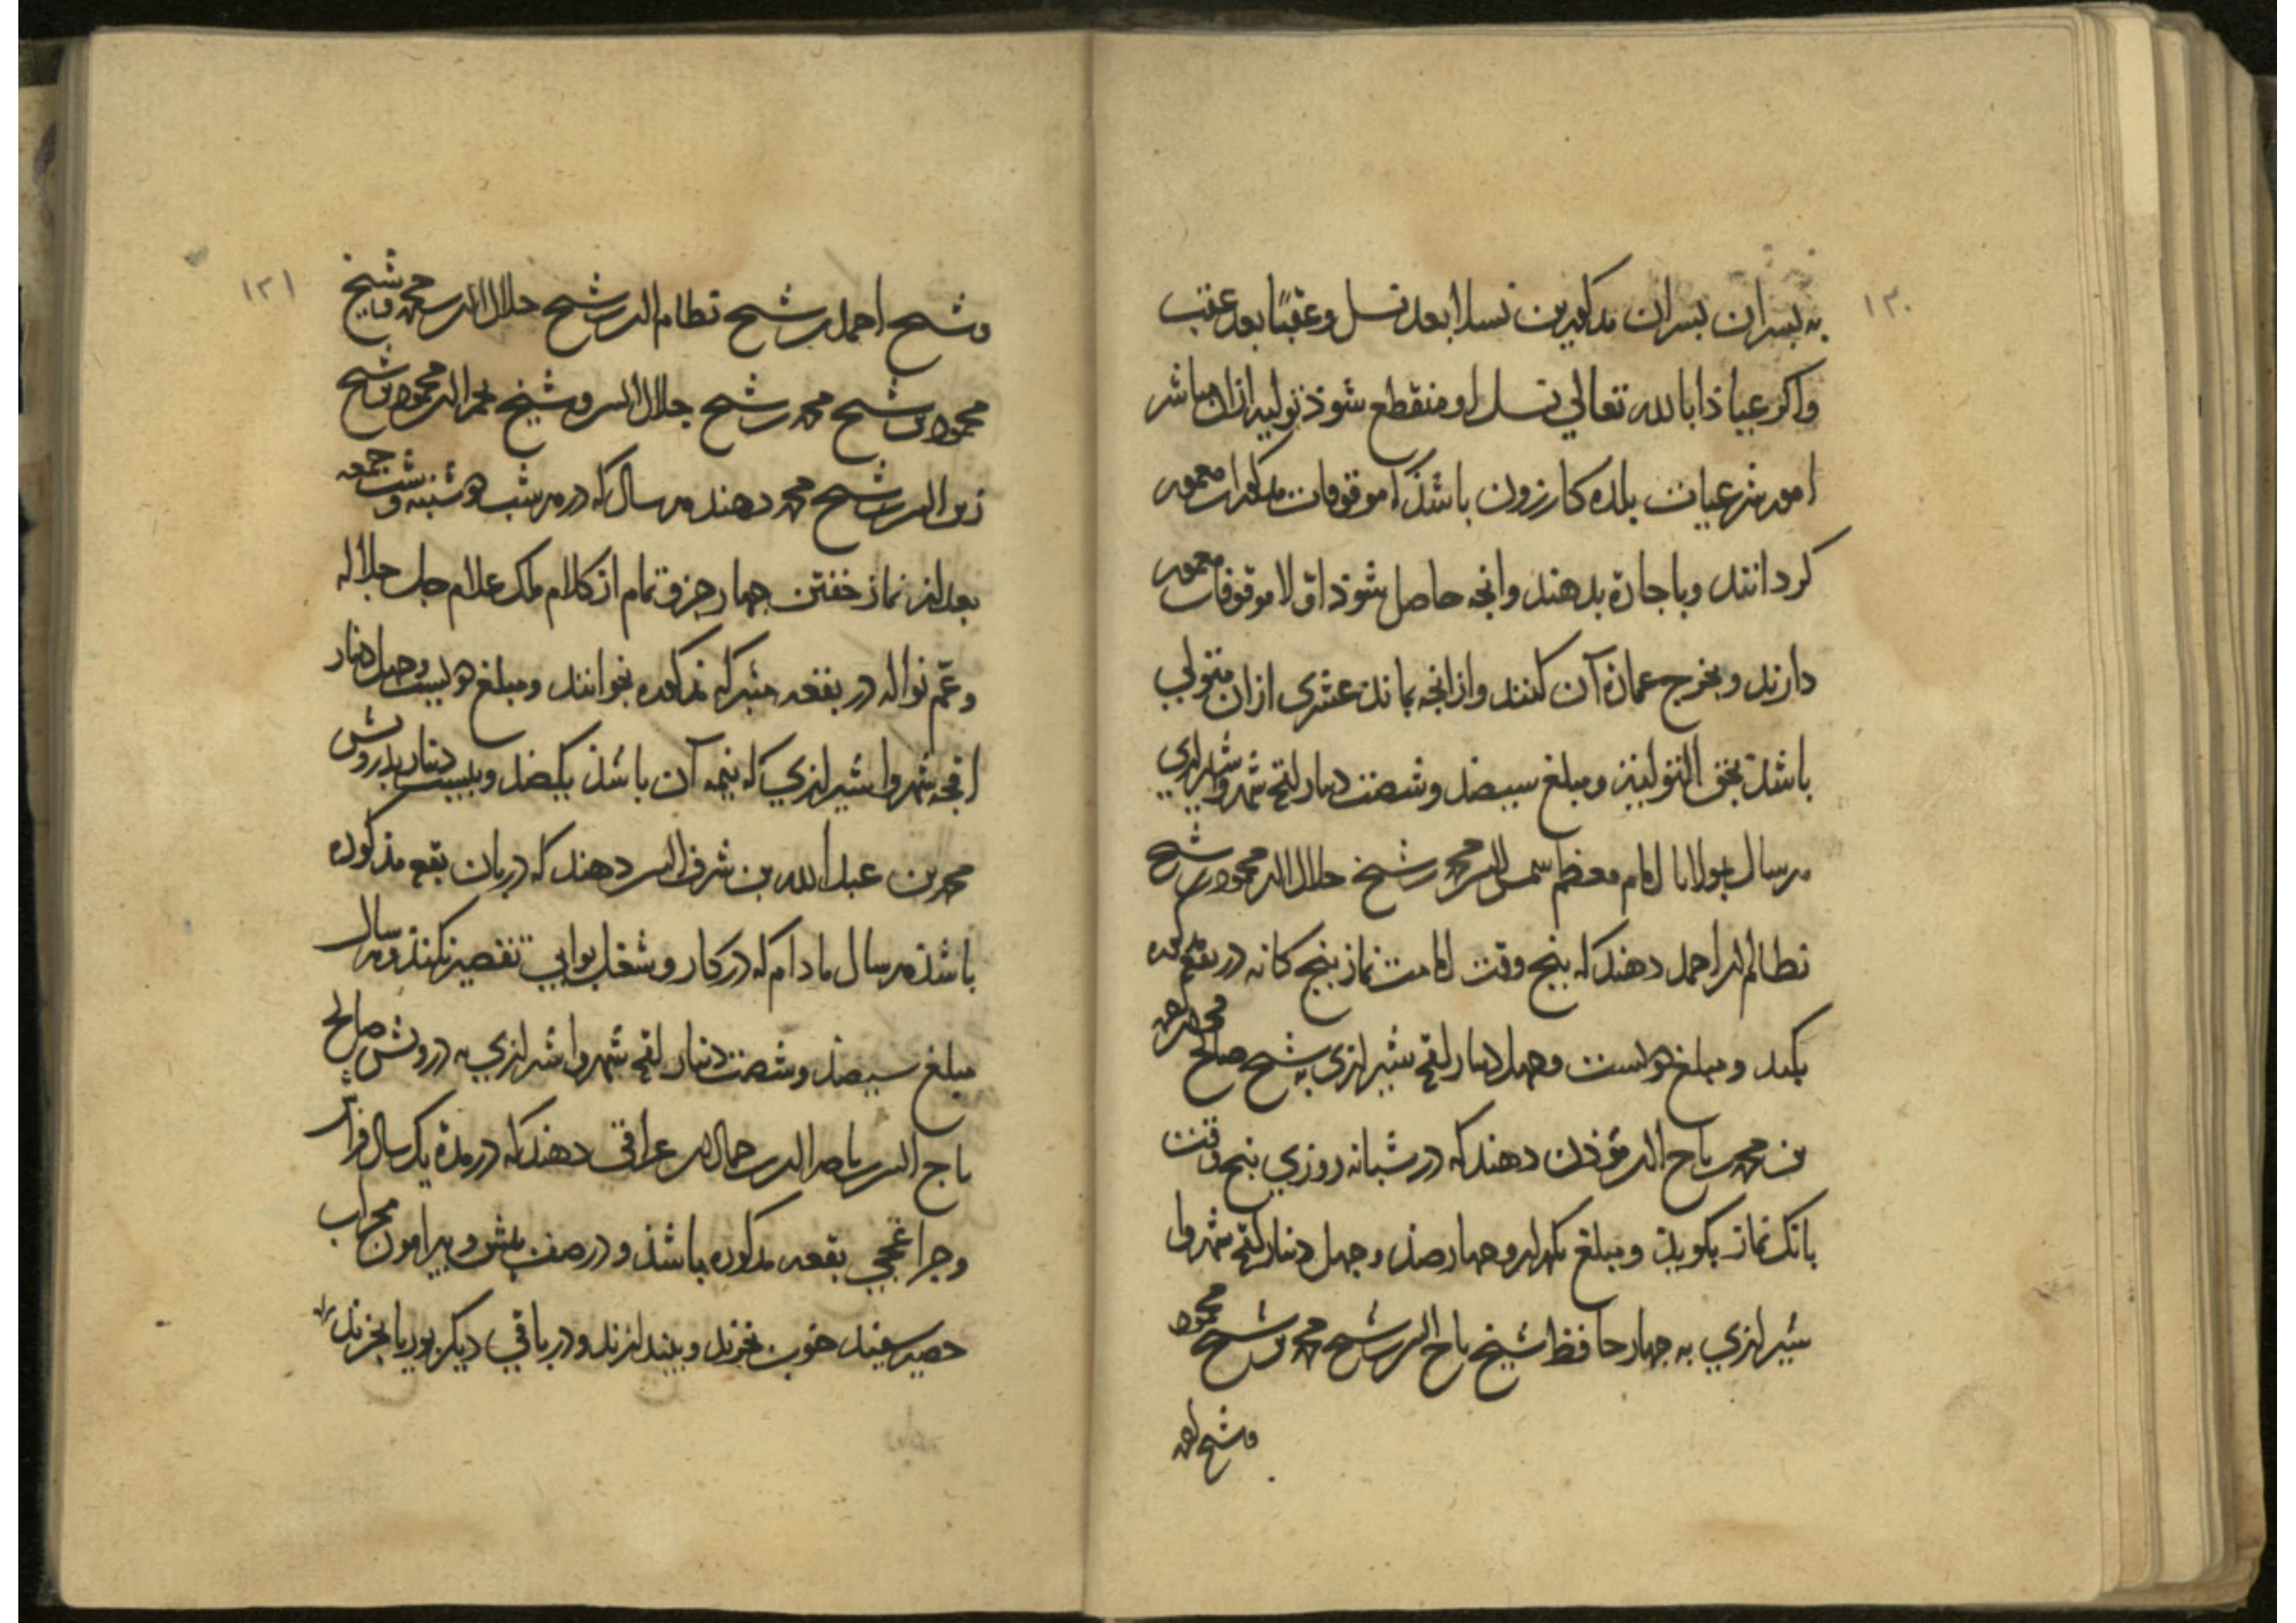 ۱۲۰
به پسران پسران مذکورین نسلا بعد نسل وعقبًا بعد عقب
واکر عیاذا بالله تعالی نسل او منقطع شوذ تولیه ازان مباشر
امور شرعیات بلده کازرون باشذ تا موقوفات مذکورات معمور
کردانند وباجازه بدهند وانچه حاصل شوذ اوّلا موقوفات معمور
دارند وبخرج عمارة آن کنند وازانچه بماند عشری ازان متولی
باشد بحق التولیة ومبلغ سیصذ وشصت دینار اقچه شهروا شیرازی
هر سال بمولانا امام معظم شمس الدین محمد بن شیخ جلال الدین محمود بن شیخ
نظام الدین احمد دهند که پنج وقت امامت نماز پنج کانه در بقعه مذکوره
بکند ومبلغ دویست وچهل دینار اقچه شیرازی به شیخ صالح
بن محمد تاج الدین مؤذن دهند که در شبانه روزی پنج وقت
بانک نماز بکویذ ومبلغ یکهزار وچهار صذ وچهل دینار اقچه شهروا
شیرازی به چهار حافظ شیخ تاج الدین شیخ محمد بن شیخ محمود
وشیخ احمد
۱۲۱
وشیخ احمد بن شیخ نظام الدین شیخ جلال الدین محمد وشیخ
محمود بن شیخ محمد بن شیخ جلال الدین وشیخ فخر الدین محمود بن شیخ
زین الدین شیخ محمد دهند هر سال که در هر شب دوشنبه وشب جمعه
بعد از نماز خفتن چهار جزو تمام از کلام ملک علام جل جلاله
وعمّ نواله در بقعه متبرکه مذکوره بخوانند ومبلغ دویست وچهل دینار
اقچه شهروا شیرازی که نیمه آن باشذ یکصذ وبیست دینار بدرویش
محمد بن عبد الله بن شرف الدین دهند که دربان بقعه مذکوره
باشذ هر سال مادام که در کار وشغل بوابی تقصیر نکند وهر سال
مبلغ سیصذ وشصت دینار اقچه شهروا شیرازی به درویش صالح
تاج الدین ناصر الدین جمال الدین عراقی دهند که در مدة یک سال فراش
وچراغچی بقعه مذکوره باشذ ودر صف پیش وپیرامون محراب
حصیر سفید خوب بخرند وبیندازند ودر باقی دیکر بوریا بخرند